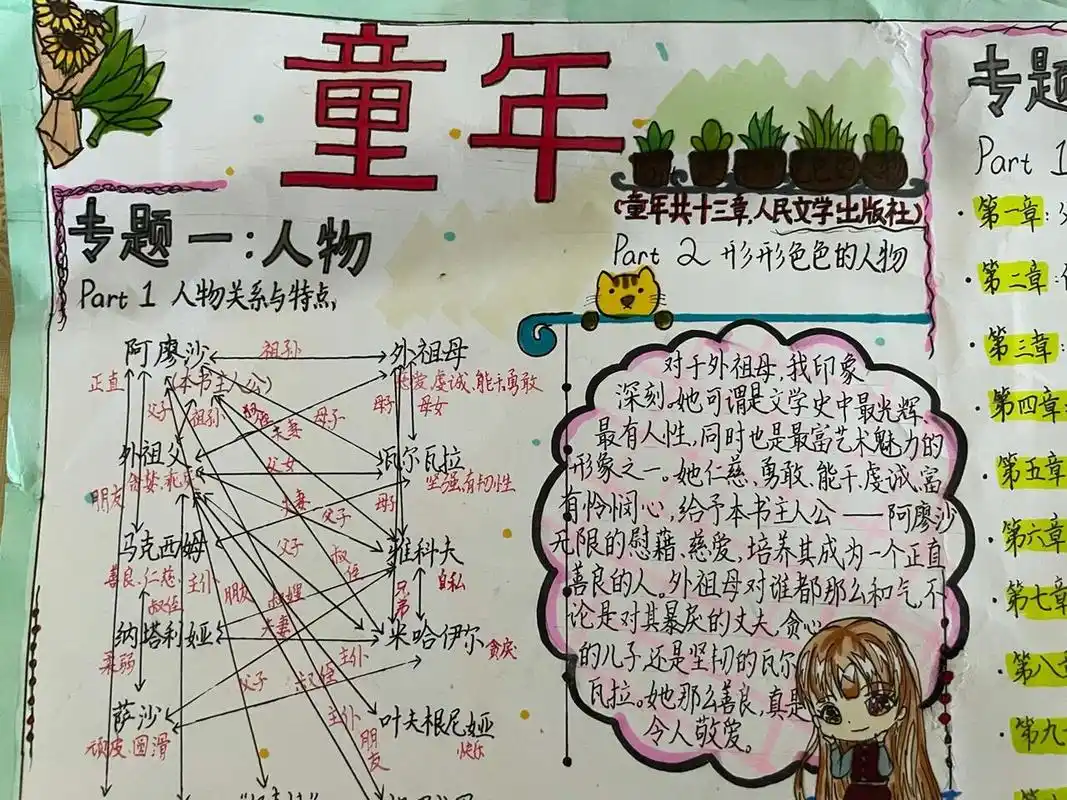 童年
(童年共十三章,人民文学出版社)
专题一:人物
Part 1 人物关系与特点,
阿廖沙
祖孙
外祖母
正直
(本书主人公)
慈爱,虔诚,能干勇敢
父子
祖孙
母子
母子
母女
夫妻
外祖父
父女
瓦尔瓦拉
坚强有韧性
朋友
夫妻
母子
父子
马克西姆
父子
叔侄
雅科夫
善良、仁慈
主仆
朋友
自私
叔侄
兄弟
纳塔利娅
夫妻
米哈伊尔
贪婪
柔弱
主仆
父子
叔侄
萨沙
主仆
叶夫根尼娅
顽皮、圆滑
朋友
快乐
Part 2 形形色色的人物
对于外祖母,我印象
深刻。她可谓是文学史中最光辉、
最有人性,同时也是最富艺术魅力的
形象之一。她仁慈、勇敢、能干、虔诚,富
有怜悯心,给予本书主人公——阿廖沙
无限的慰藉、慈爱,培养其成为一个正直
善良的人。外祖母对谁都那么和气,不
论是对其暴戾的丈夫,贪心
的儿子,还是坚韧的瓦尔
瓦拉。她那么善良,真是
令人敬爱。
专题
Part 1
·第一章:
·第二章:
·第三章:
·第四章:
·第五章
·第六章
·第七章
·第八
·第九